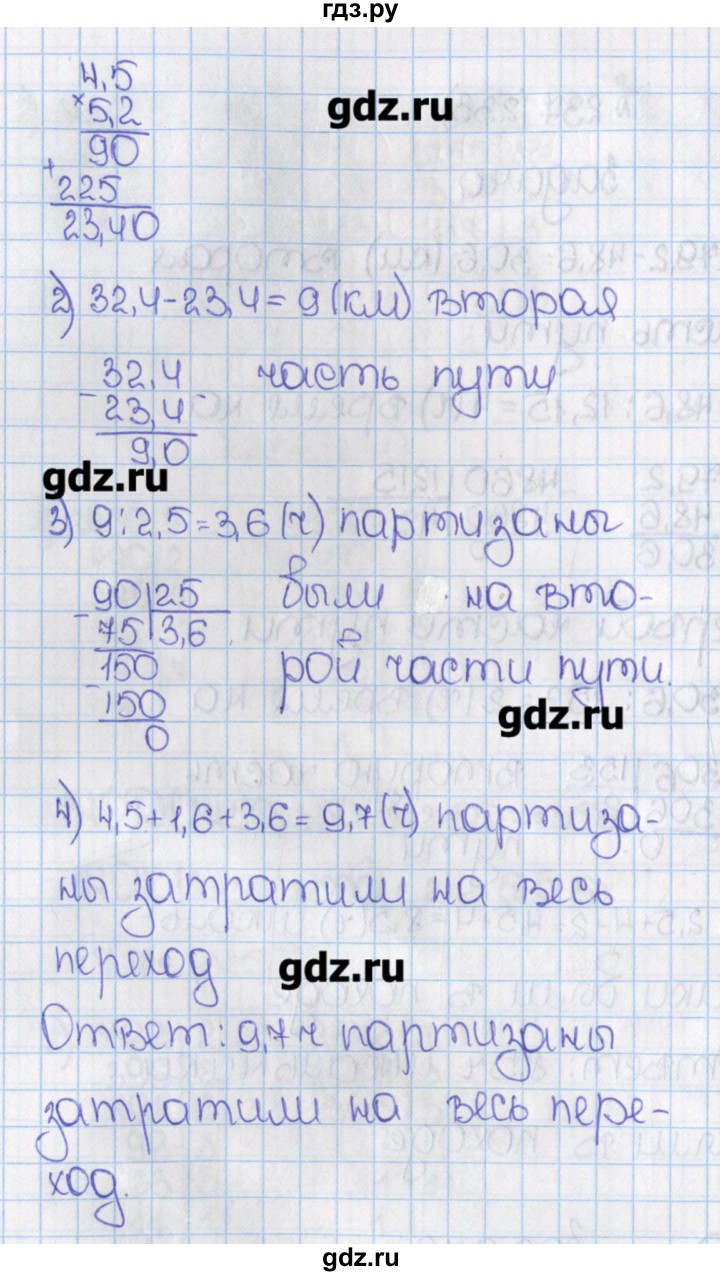 гдз.ру
4,5
× 5,2
gdz.ru
90
+ 225
23,40
2) 32,4-23,4=9(км) вторая
32,4 часть пути
- 23,4
9,0
gdz.ru
3) 9:2,5=3,6(ч) партизаны
90|25 были на вто-
- 75|3,6
150 рой части пути.
- 150
gdz.ru
0
4) 4,5+1,6+3,6=9,7(ч) партиза-
ны затратили на весь
переход
gdz.ru
Ответ: 9,7ч партизаны
затратили на весь пере-
ход.
gdz.ru